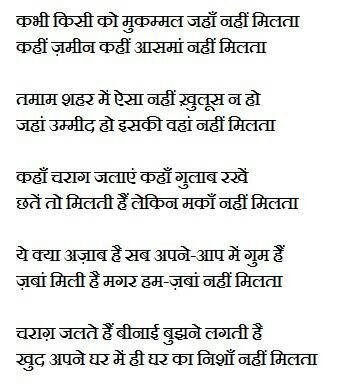 कभी किसी को मुकम्मल जहाँ नहीं मिलता
कहीं ज़मीन कहीं आसमां नहीं मिलता
तमाम शहर में ऐसा नहीं ख़ुलूस न हो
जहां उम्मीद हो इसकी वहां नहीं मिलता
कहाँ चराग जलाएं कहाँ गुलाब रखें
छतें तो मिलती हैं लेकिन मकाँ नहीं मिलता
ये क्या अज़ाब है सब अपने-आप में गुम हैं
ज़बां मिली है मगर हम-ज़बां नहीं मिलता
चराग़ जलते हैं बीनाई बुझने लगती है
खुद अपने घर में ही घर का निशाँ नहीं मिलता